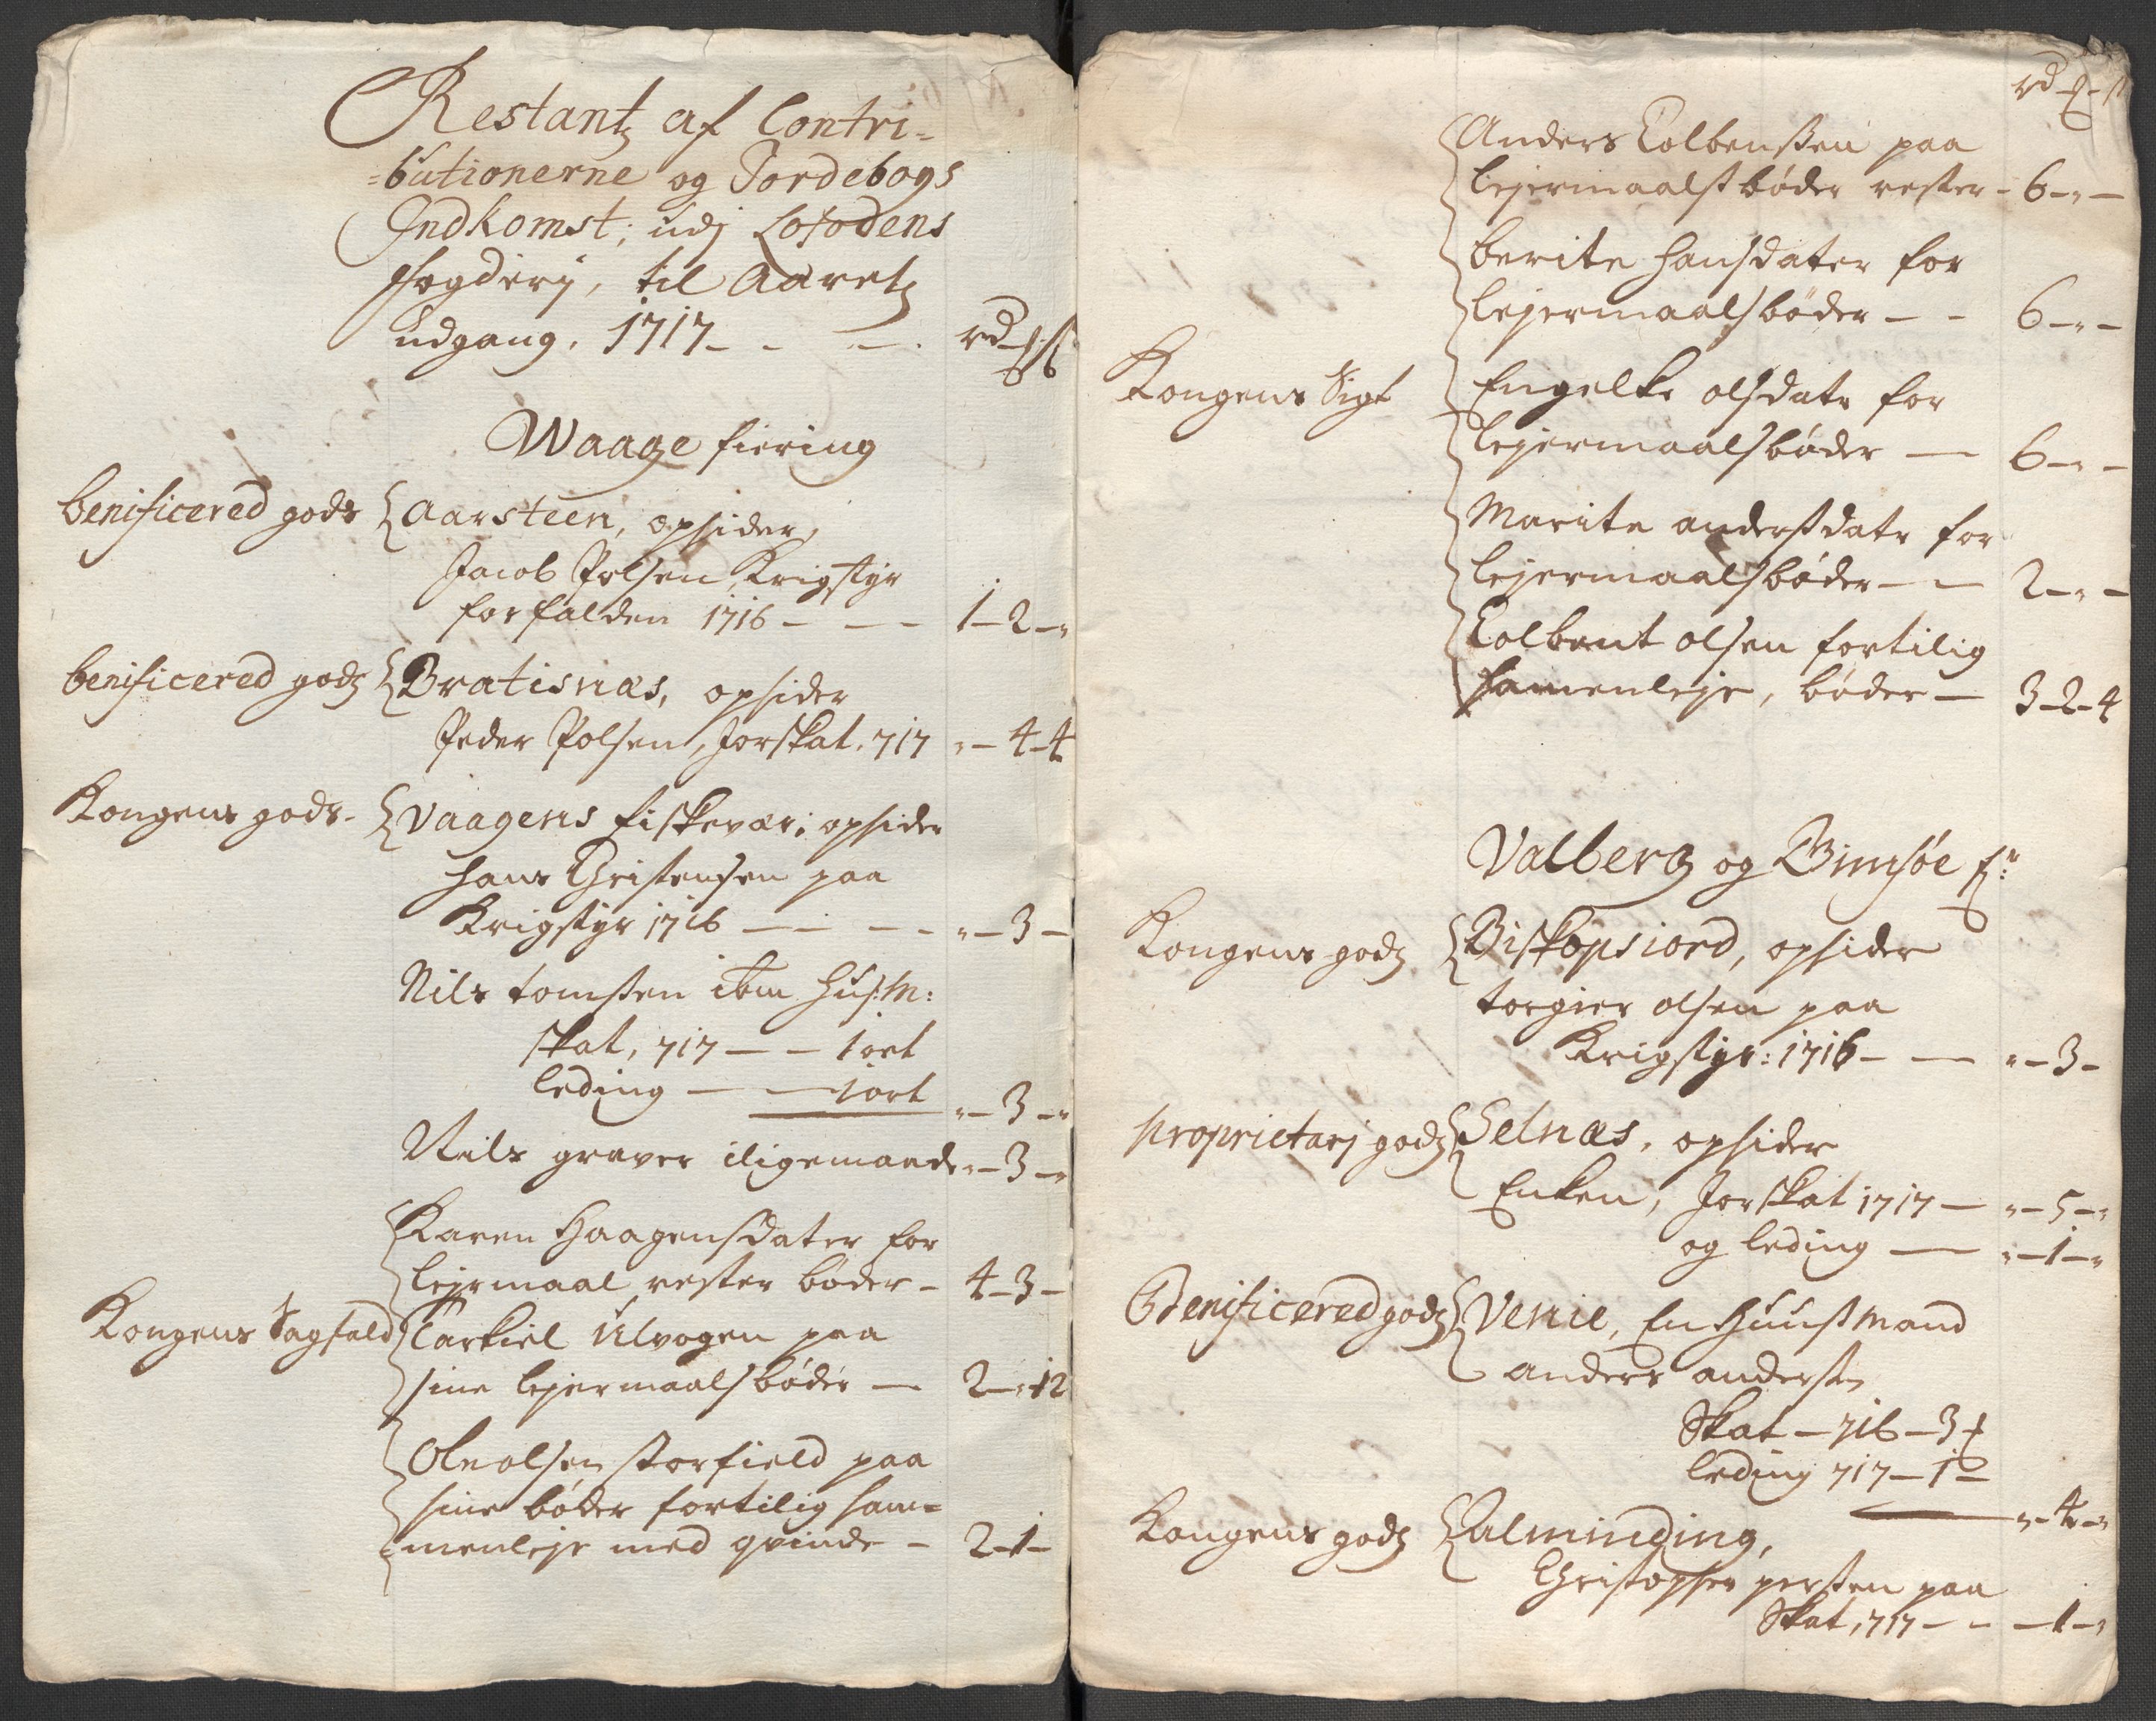 Restantz af Contri-
=butionerne og Jordebogs
Indkomst; udj Lofodens
fogderj, til Aaretz
udgang, 1717 - - - rd
Waage fiering
benificered gods {Aarsteen, opsider,
Jacob Polsen Krigstyr
forfalden 1716 - - - 1-2-"
benificered godz {Bratisnæs, opsider
Peder Polsen, Jorskat, 717 "-4-4
Kongens gods- {Vaagens fiskevær; opsider
Hans Christensen paa
Krigstyr 1716 - - - - "-3-
Nils tomsen ibm Husm:
skat, 717 - - 1 ort
leding - - 1 ort "-3-"
Nils graver iligemaade "-3-"
Karen Haagensdater for
lejrmaal rester bøder - 4-3-
Kongens Sagfald Tarkiel Ulvogen paa
sine lejermaals bøder - 2-"-12
Ole olsen storfield paa
sine bøder fortilig sam=
=menleje med qvinde - 2-1-
rd
Anders Colbensen paa
lejermaals bøder rester - 6-"-
berite Hansdater for
lejermaals bøder - - 6-"-
Kongens Sigt Engelke olsdatr for
lejermaals bøder - 6-"-
Marite andersdatr for
lejermaals bøder - - 2-"-
Colbent olsen fortilig
samenleje, bøder - 3-2-4
Valberg og Gimsøe fr:
Kongens godz {Biskopsiord, opsider
torgier olsen paa
Krigstyr: 1716 - - "-3-
proprietarj godz {Selnæs, opsider
Enken, Jorskat 1717 - "-5-"
og leding - "-1-"
Benificered godz {Venie, En Huusmand
anders andersen
Skat - 716 - 3
leding 717 - 1 -
"-4-"
Kongens godz {Alminding,
Christopher persen paa
Skat, 717 - - -1-"